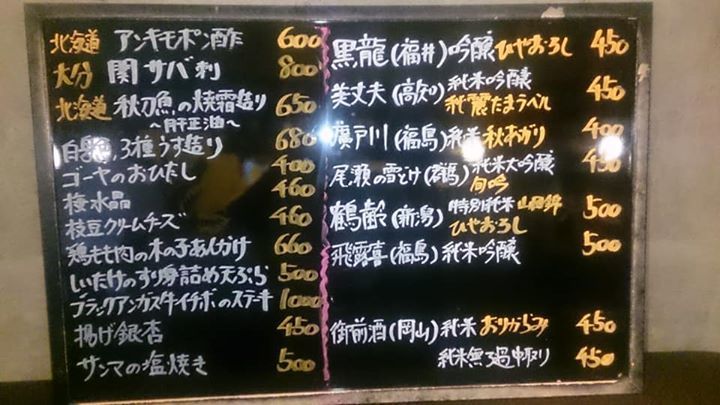 北海道 アンキモポン酢 600
大分 関サバ刺 800
北海道 秋刀魚の焼霜造り 650
〜肝正油〜
白身魚,3種うす造り 680
ゴーヤのおひたし 400
梅水晶 460
枝豆クリームチーズ 460
鶏もも肉の木の子あんかけ 660
しいたけのすり身詰め天ぷら 500
ブラックアンガスタイチボのステーキ 1000
揚げ銀杏 450
サンマの塩焼き 500
黒龍(福井)吟醸 ひやおろし 450
美丈夫(高知)純米吟醸 450
純麗たまラベル
廣戸川(福島)純米 秋あがり 400
尾瀬の雪どけ(群馬)純米大吟醸 450
旬吟
鶴齢(新潟)特別純米 山田錦 500
ひやおろし
飛露喜(福島)純米吟醸 500
御前酒(岡山)純米 おりがらみ 450
純米無ろ過中取り 450